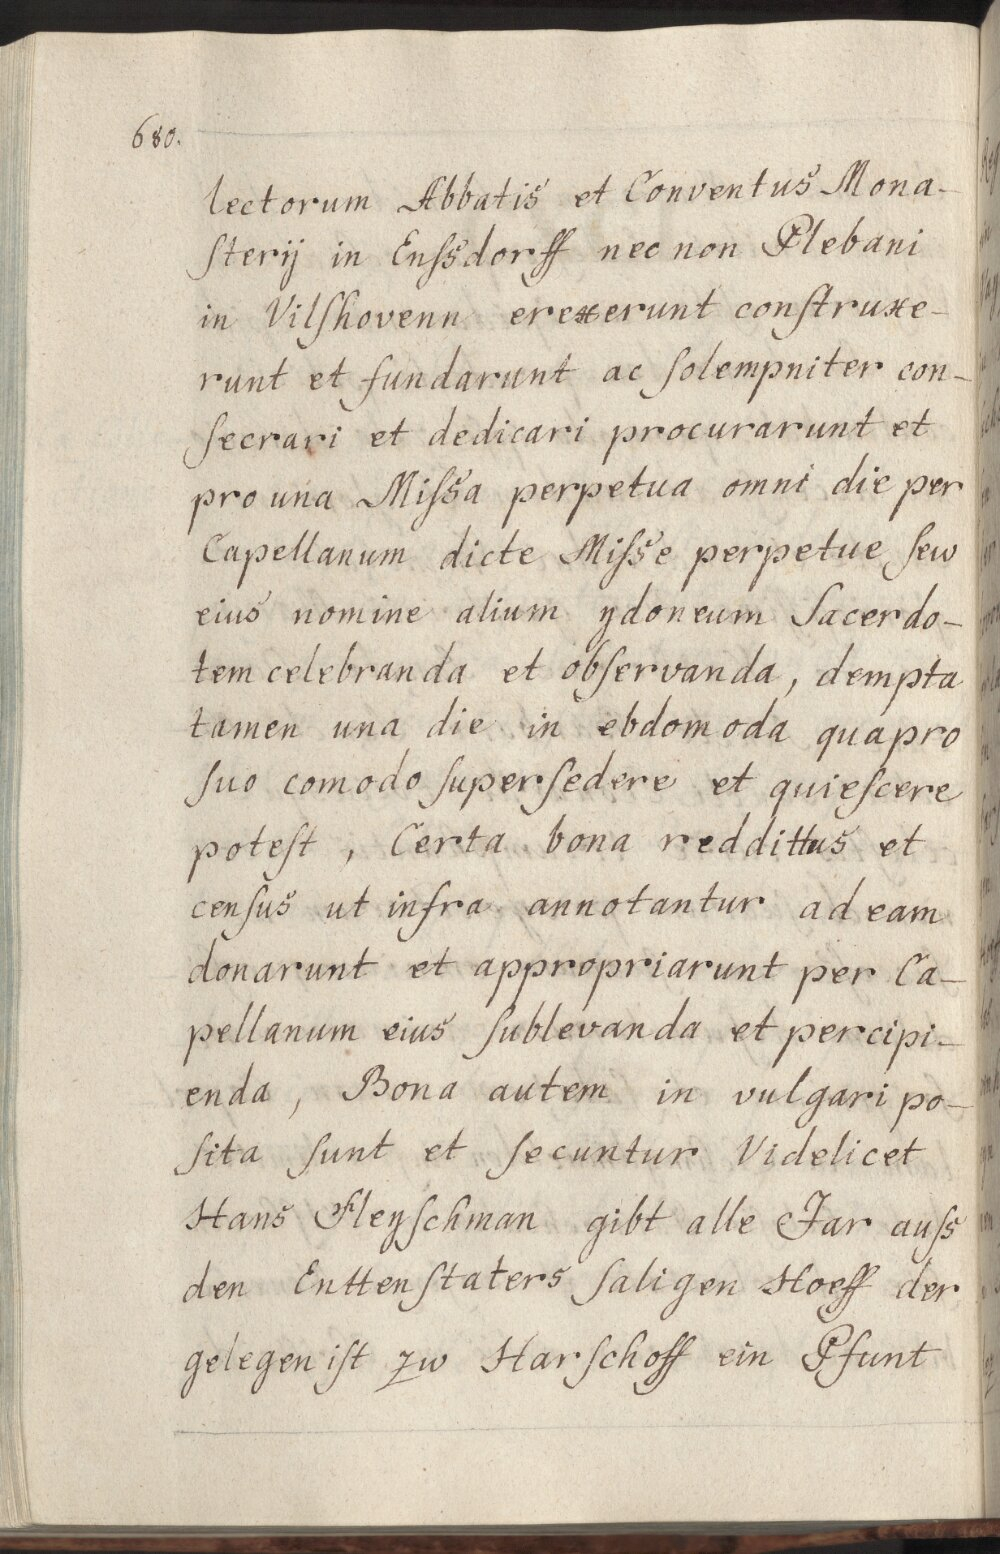 680.
lectorum Abbatis et Conventus Mona-
sterij in Enssdorff nec non Plebani
in Vilshovenn erexerunt construxe-
runt et fundarunt ac solempniter con-
secrari et dedicari procurarunt et
pro una Missa perpetua omni die per
Capellanum dicte Misse perpetue sew
eius nomine alium ydoneum Sacerdo-
tem celebranda et observanda, dempta
tamen una die in ebdomoda qua pro
suo comodo supersedere et quiescere
potest, Certa bona reddittus et
census ut infra annotantur ad eam
donarunt et appropriarunt per Ca-
pellanum eius sublevanda et percipi-
enda, Bona autem in vulgari po-
sita sunt et secuntur Videlicet
Hans Fleyschman gibt alle Jar auss
den Enttenstaters saligen Hoeff der
gelegen ist zw Harschoff ein Pfunt